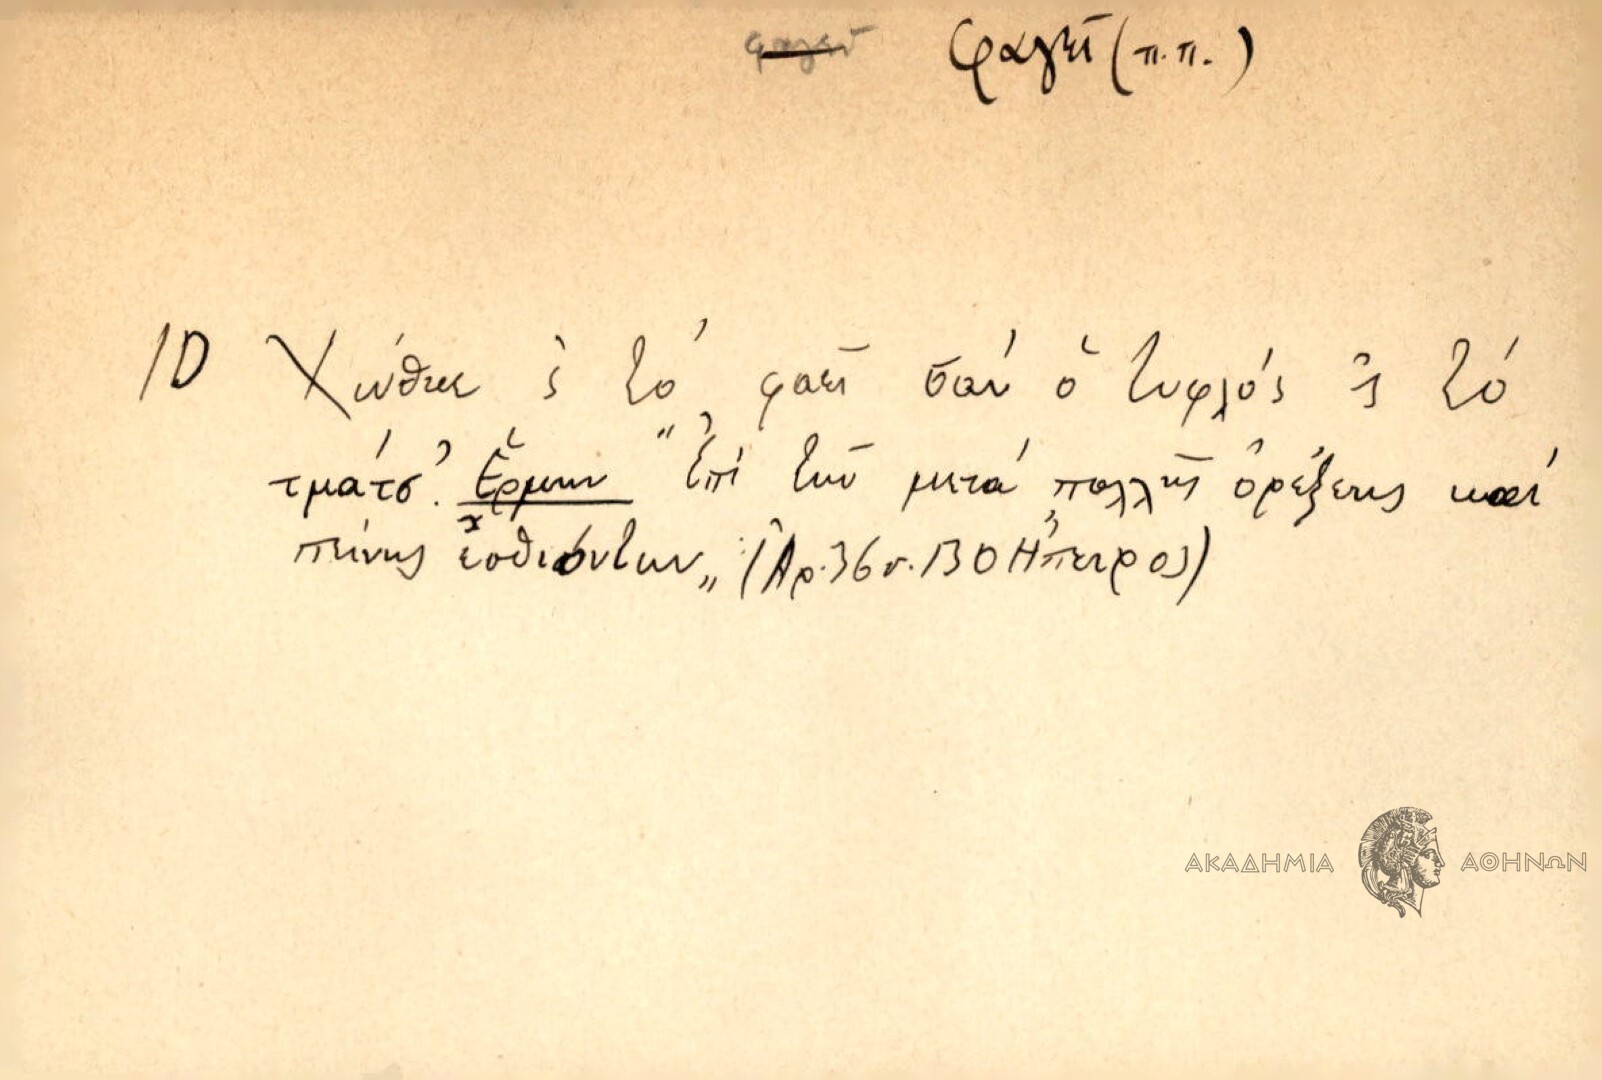 φαγεῖ φαγεῖ (π.π.)
10 Χώθκε ς τὸ φαεῖ σὰν ὁ τυφλός ς τὸ
τμάτσ'. Ἑρμην "Ἐπὶ τῶν μετὰ πολλῆς ὀρέξεως καὶ
πείνης ἐσθιόντων„ (Ἀρ.36 ν.130 Ἤπειρος)
ΑΚΑΔΗΜΙΑ ΑΘΗΝΩΝ